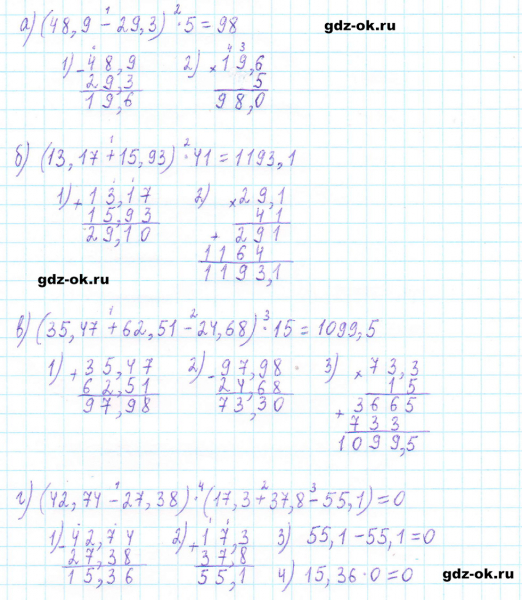 gdz-ok.ru
а) (48,9 - 29,3) · 5 = 98
1) - 48,9
29,3
19,6
2) × 19,6
5
98,0
б) (13,17 + 15,93) · 41 = 1193,1
1) + 13,17
15,93
29,10
2) × 29,1
41
+ 291
1164
1193,1
gdz-ok.ru
в) (35,47 + 62,51 - 24,68) · 15 = 1099,5
1) + 35,47
62,51
97,98
2) - 97,98
24,68
73,30
3) × 73,3
15
+ 3665
733
1099,5
г) (42,74 - 27,38) · (17,3 + 37,8 - 55,1) = 0
1) - 42,74
27,38
15,36
2) + 17,3
37,8
55,1
3) 55,1 - 55,1 = 0
4) 15,36 · 0 = 0
gdz-ok.ru